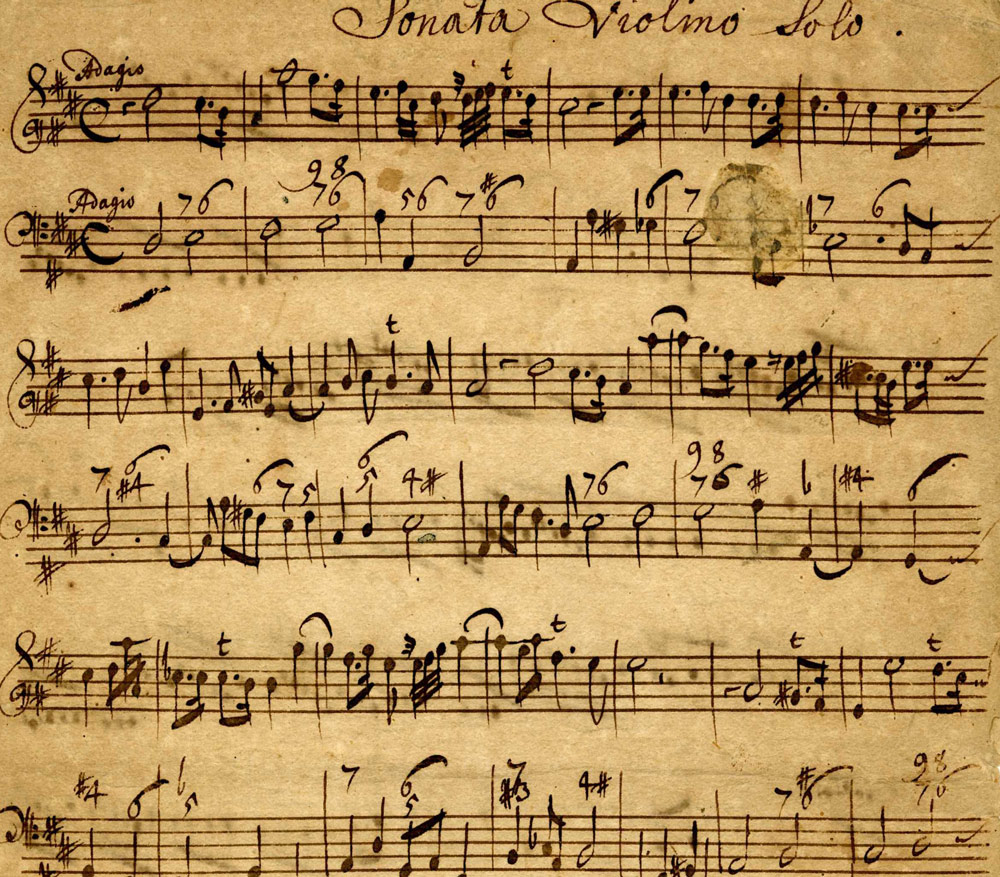 Sonata Violino Solo .
Adagio 3 t
9 8
Adagio 7 6 7 6 5 6 7 #6 6 7 7 6
t
6 9 8
7 #4 6 6 7 5 5 4 # 7 6 7 6 # ♭ #4 6
t 3 t t t
#4 6 ♭ 5 7 6 5 7 4 # 7 #6 9 8 7 6